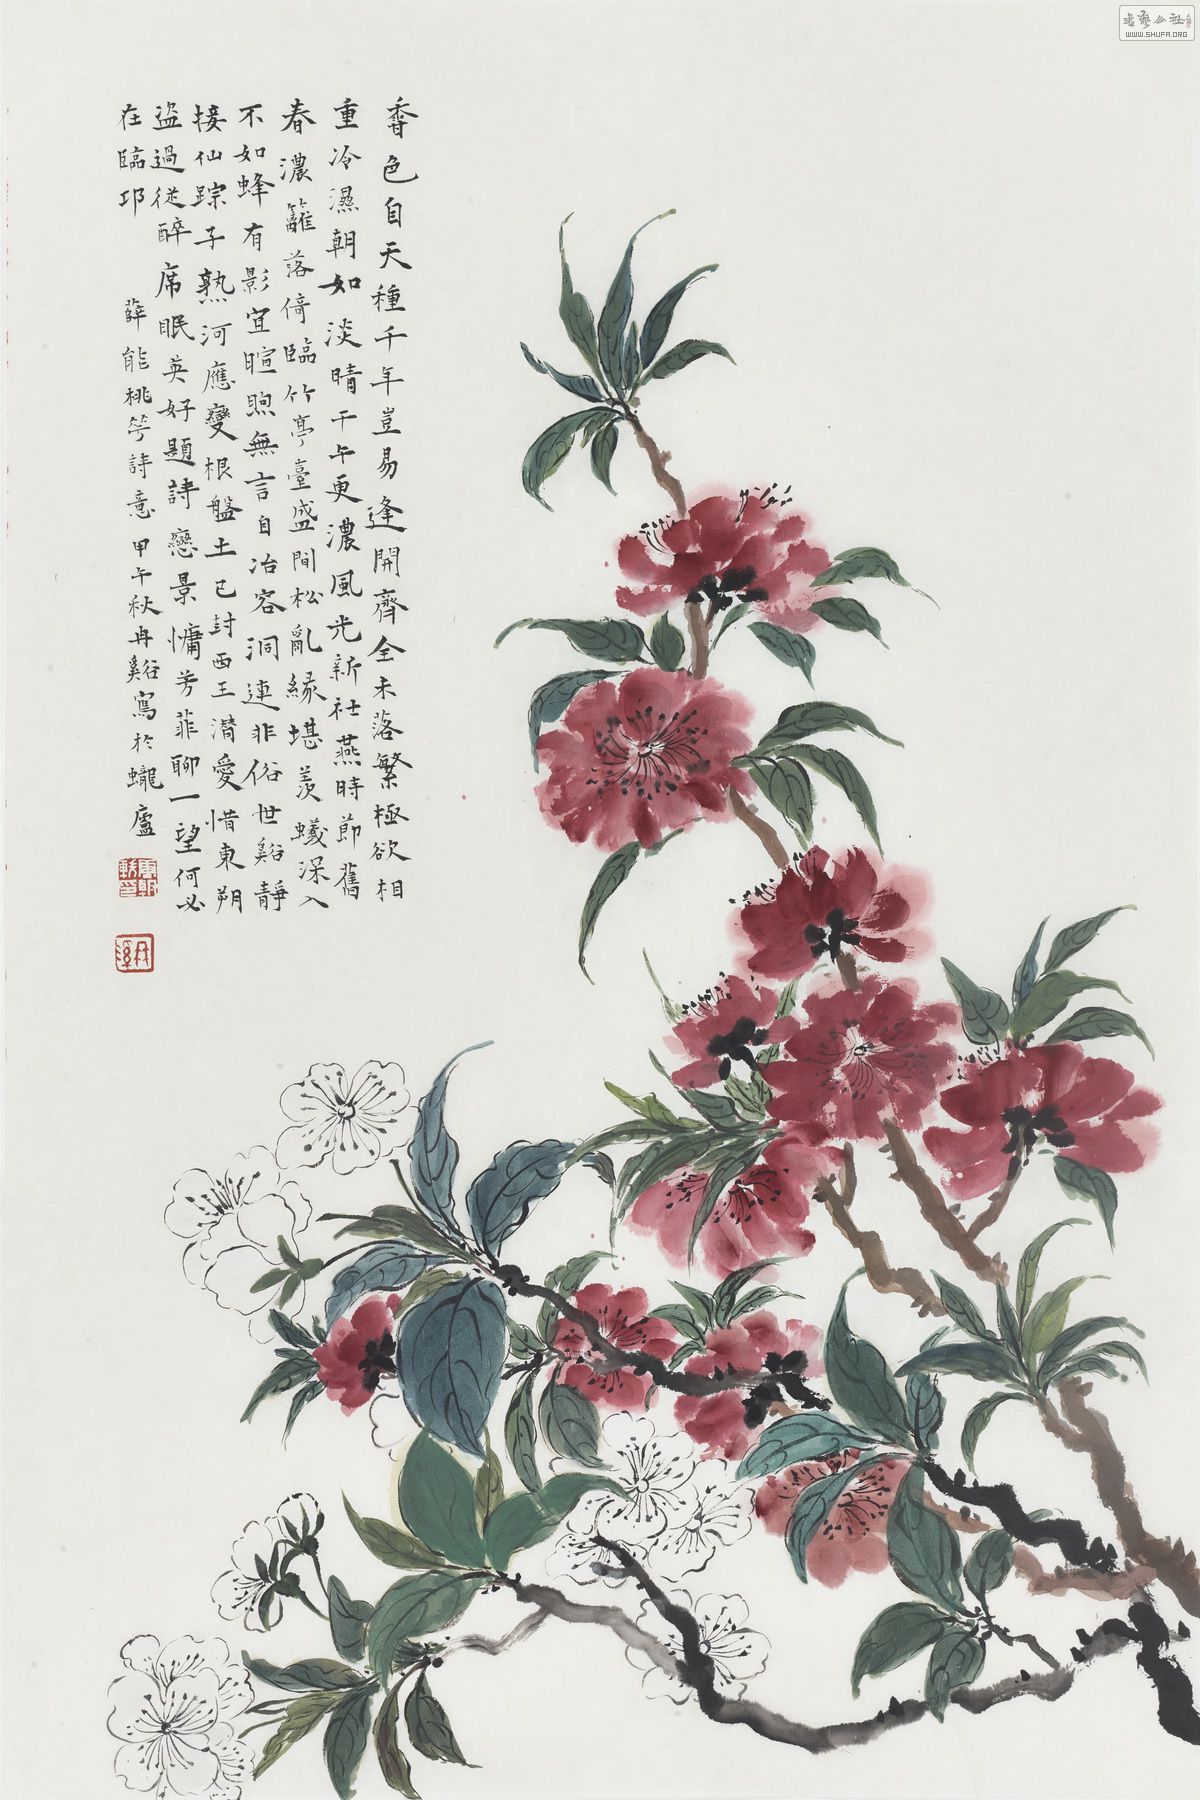 香色自天種千年豈易逢開齊全未落繁極欲相
重冷濕朝如淡晴干午更濃風光新社燕時節舊
春濃籬落倚臨竹亭臺盛間松亂緣堪羨蟻深入
不如蜂有影宜暄煦無言自冶容洞連非俗世谿靜
接仙踪子熟河應變根盤土已封西王潛愛惜東朔
盜過從醉席眠英好題詩戀景慵芳菲聊一望何必
在臨邛
薛能桃花詩意甲午秋冉谿寫於蠬廬
書藝公社
WWW.SHUFA.ORG